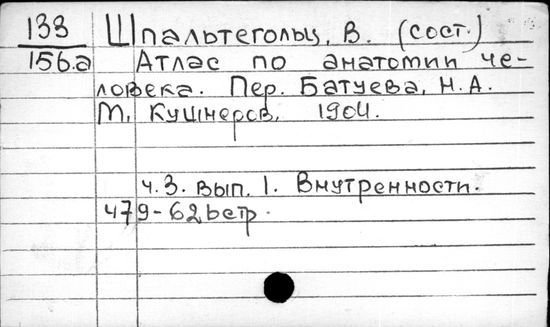 133 Шпальтегольц, В. (сост.)
156.а Атлас по анатомии че-
ловека. Пер. Батуева, Н.А.
М, Кушнерев, 1904.
ч.3. вып. 1. Внутренности.
479-626стр.